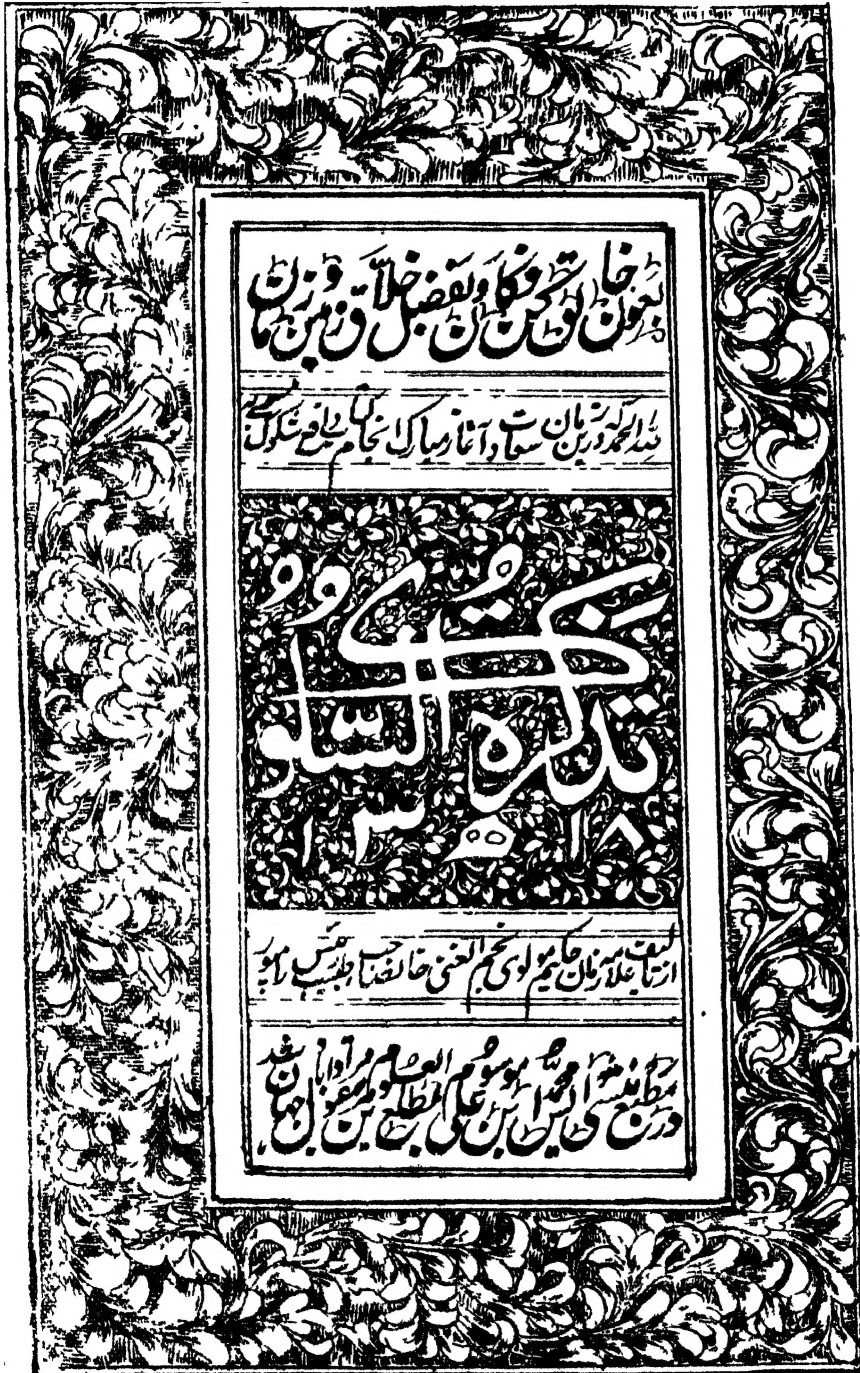 بعون خالق کن فکان و بفضل خلاق زمین و زمان
لله الحمد که درین زمان سعادت آغاز مبارک انجام دافع شکوک
تذکرۃ السلوک
۱۳۱۸ھ
از تالیف علامہ زمان حکیم مولوی نجم الغنی خانصاحب طبیب رئیس رامپور
در مطبع منشی محمد ابن علی موسوم مطلع العلوم مرادآباد شد